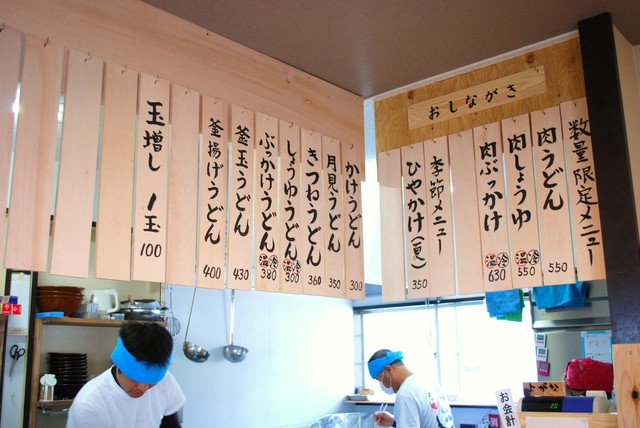 おしながき
数量限定メニュー
肉うどん 550
肉しょうゆ 温 冷 550
肉ぶっかけ 温 冷 630
季節メニュー
ひやかけ(夏) 350
かけうどん 300
月見うどん 350
きつねうどん 360
しょうゆうどん 温 冷 300
ぶっかけうどん 温 冷 380
釜玉うどん 430
釜揚げうどん 400
玉増し 1玉 100
お会計